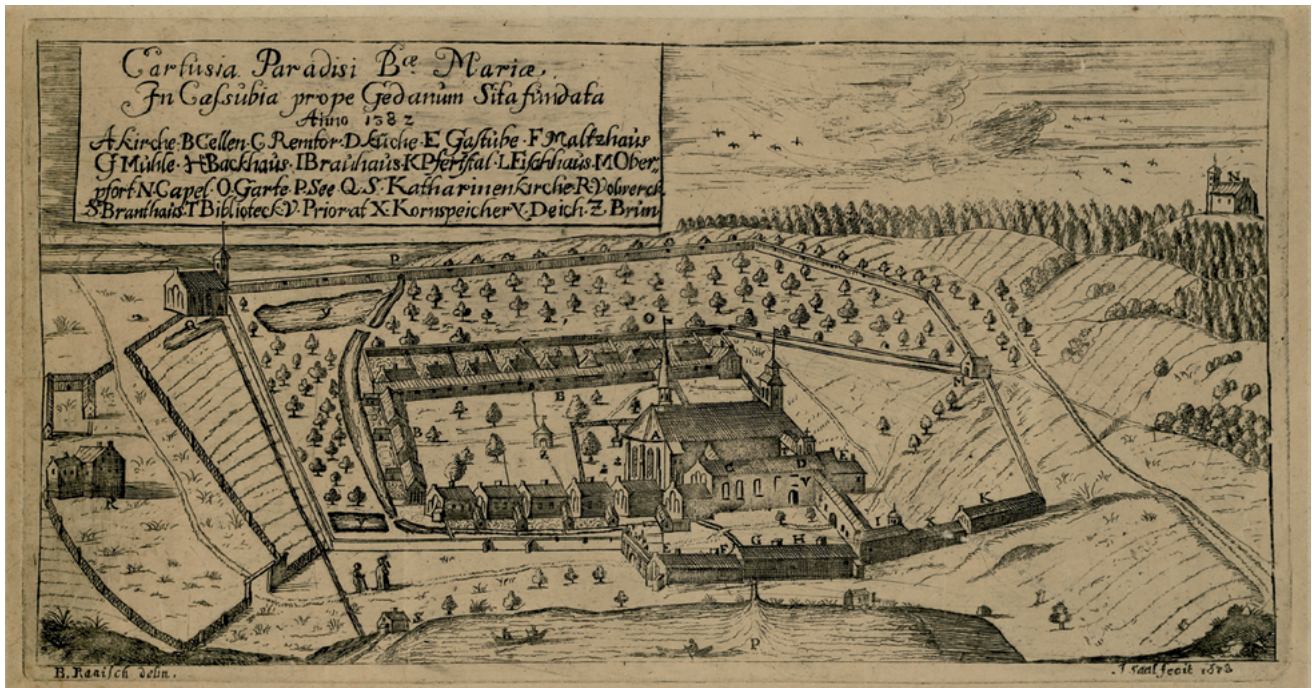 Cartusia Paradisi Bæ Mariæ.
In Cassubia prope Gedanum Sita fundata
Anno 1382
A Kirche · B Cellen · C Remtor · D Küche · E Gastube · F Maltzhaus
G Mühle · H Backhaus · I Brauhaus · K Pferstal · L Fischhaus · M Ober-
pfort N Capel · O Garte · P See Q S · Katharinenkirche · R Volwerck
S Branthaus T Biblioteck · V · Priorat X · Kornspeicher Y · Deich · Z Brun
N
P
O
M
B
B
A
Z
C
D
E
V
R
K
I
X
G
H
E
F
S
L
P
B. Ranisch delin.
fecit